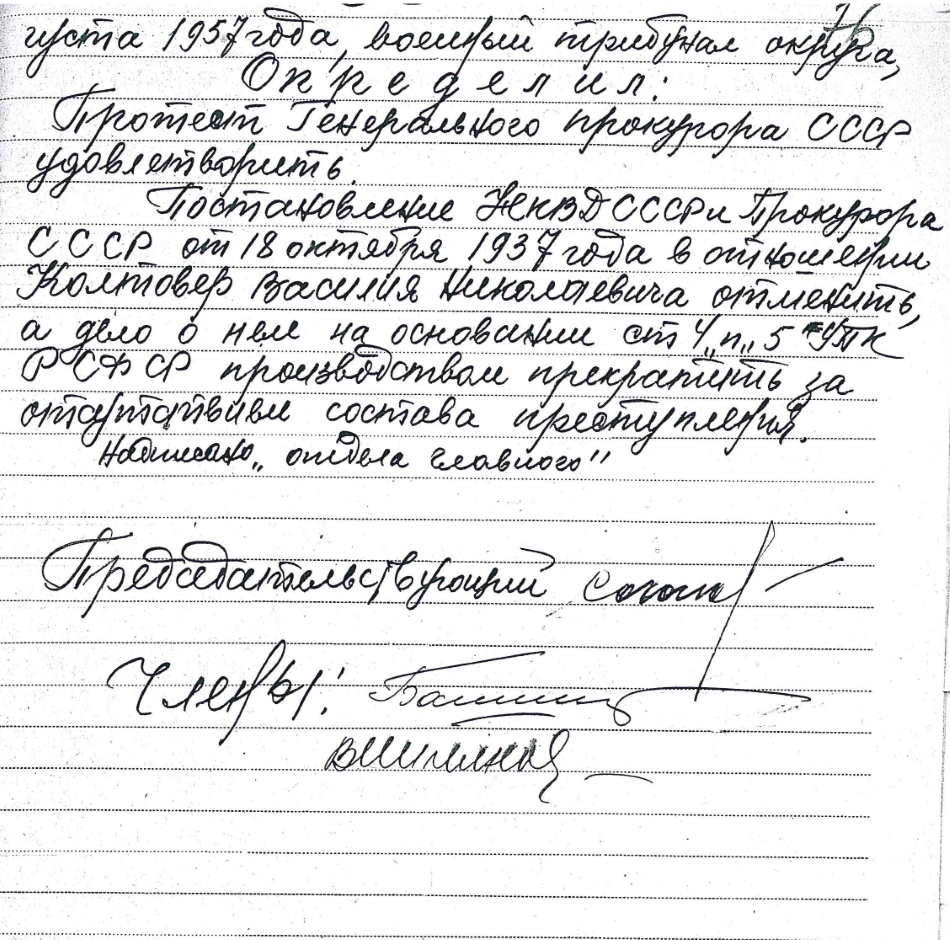 76
густа 1957 года, военный трибунал округа,
Определил:
Протест Генерального прокурора СССР
удовлетворить.
Постановление НКВД СССР и Прокурора
СССР от 18 октября 1937 года в отношении
Колтовер Василия Николаевича отменить,
а дело о нем на основании ст 4 „п„ 5 УПК
РСФСР производством прекратить за
отсутствием состава преступления.
Надписано „отдела главного"
Председательствующий
Члены: